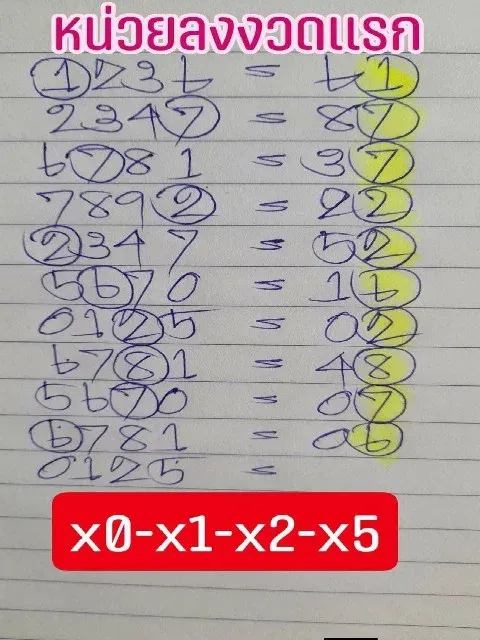 หน่วยลงงวดแรก
1236 = 61
2347 = 87
6781 = 37
7892 = 22
2347 = 52
5670 = 16
0125 = 02
6781 = 48
5670 = 07
6781 = 06
0125 =
x0-x1-x2-x5